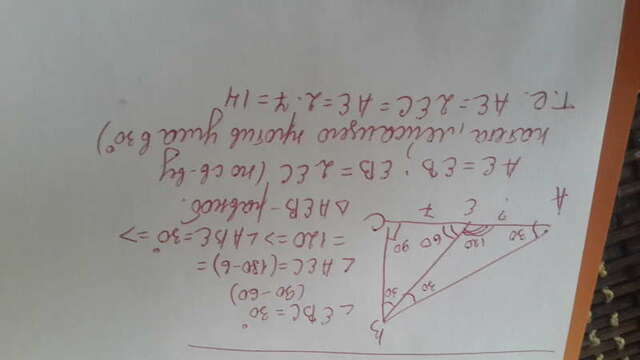 B
30
30
30
120
60
90
A
?
E
7
C
∠EBC = 30°
(90-60)
∠AEC = (180-6) =
= 120 => ∠ABE = 30° =>
△AEB - равноб.
AE = EB; EB = 2EC (по св-ву
катета, лежащего против угла в 30°)
Т.е. AE = 2EC = AE = 2·7 = 14